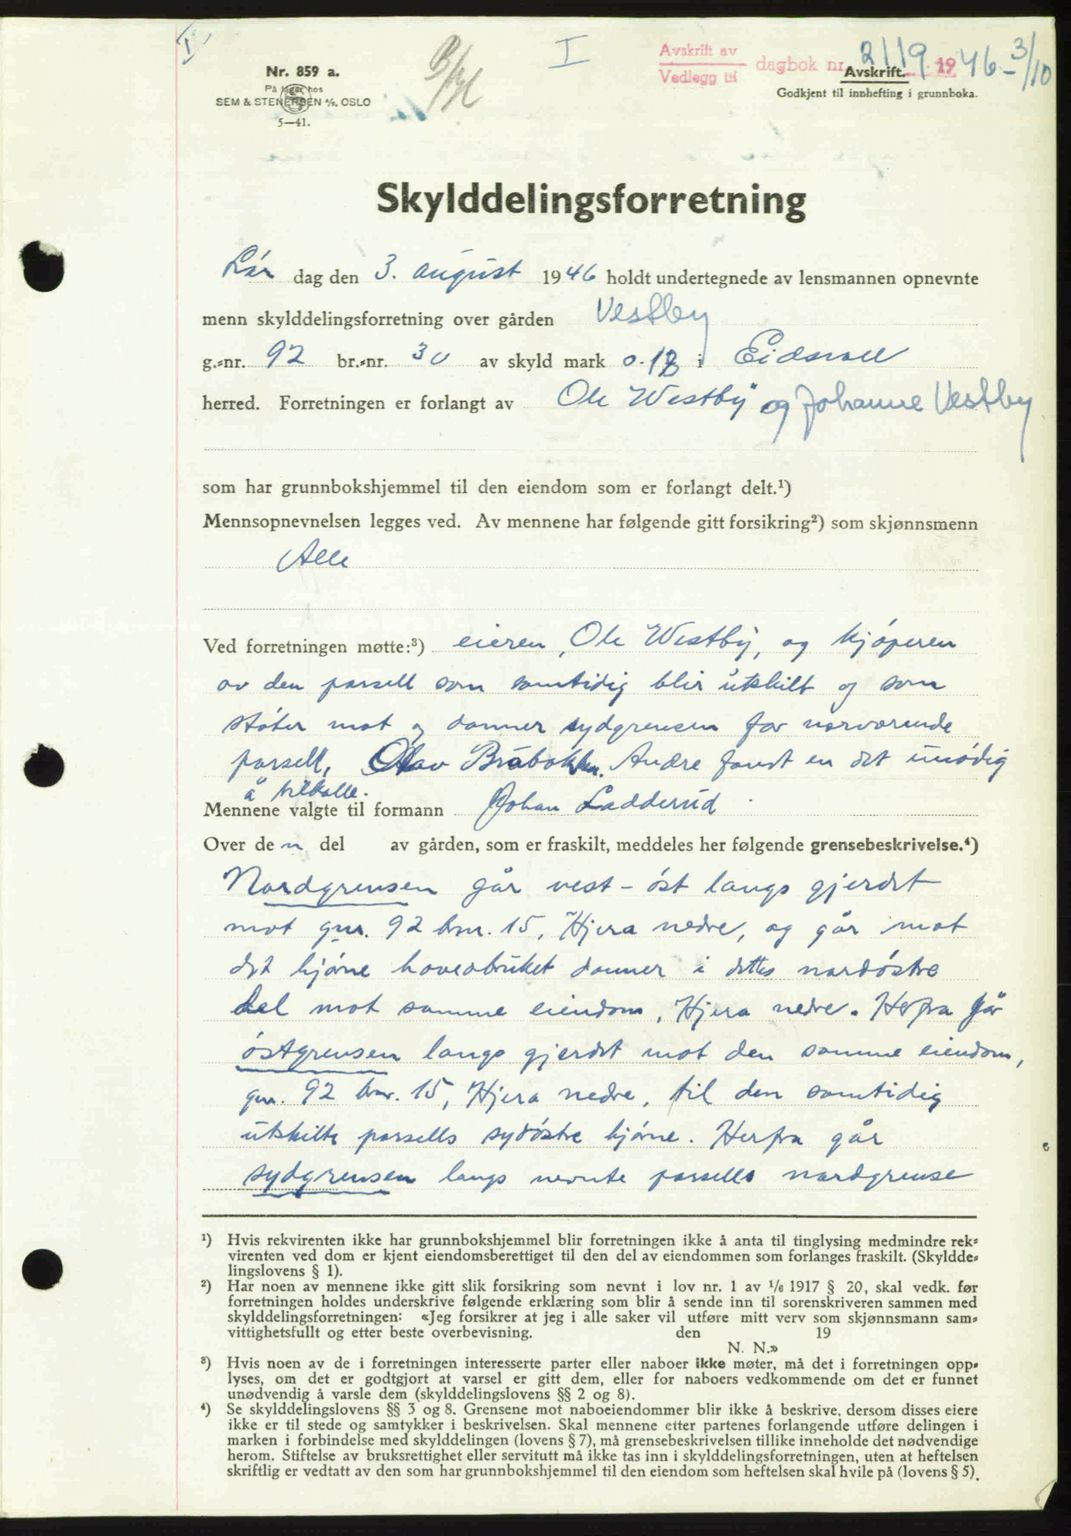 I
Nr. 859 a.
På lager hos
SEM & STENERSEN A/S, OSLO
5—41.
I
Avskrift av
Vedlegg til
dagbok nr. 2119 1946 - 3/10
Avskrift.
Godkjent til innhefting i grunnboka.
Skylddelingsforretning
Lør dag den 3. august 1946 holdt undertegnede av lensmannen opnevnte
menn skylddelingsforretning over gården Vestby
g.-nr. 92 br.-nr. 30 av skyld mark 0.18 i Eidsvoll
herred. Forretningen er forlangt av Ole Westby og Johanne Vestby
som har grunnbokshjemmel til den eiendom som er forlangt delt.¹)
Mennsopnevnelsen legges ved. Av mennene har følgende gitt forsikring²) som skjønnsmenn
Alle
Ved forretningen møtte:³) eieren, Ole Westby, og kjøperen
av den parsell som samtidig blir utskilt og som
støter mot og danner sydgrensen for nærværende
parsell, Olav Bråbakken. Andre fandt en det unødig
å tilkalle.
Mennene valgte til formann Johan Ladderud.
Over den del av gården, som er fraskilt, meddeles her følgende grensebeskrivelse.⁴)
Nordgrensen går vest - øst langs gjerdet
mot gnr. 92 bnr. 15, Hjera nedre, og går mot
det hjørne hovedbruket danner i dettes nordøstre
del mot samme eiendom, Hjera nedre. Herfra går
østgrensen langs gjerdet mot den samme eiendom,
gnr. 92 bnr. 15, Hjera nedre, til den samtidig
utskilte parsells sydøstre hjørne. Herfra går
sydgrensen langs nevnte parsells nordgrense
¹) Hvis rekvirenten ikke har grunnbokshjemmel blir forretningen ikke å anta til tinglysing medmindre rek-
virenten ved dom er kjent eiendomsberettiget til den del av eiendommen som forlanges fraskilt. (Skyldde-
lingslovens § 1).
²) Har noen av mennene ikke gitt slik forsikring som nevnt i lov nr. 1 av 1/6 1917 § 20, skal vedk. før
forretningen holdes underskrive følgende erklæring som blir å sende inn til sorenskriveren sammen med
skylddelingsforretningen: «Jeg forsikrer at jeg i alle saker vil utføre mitt verv som skjønnsmann sam-
vittighetsfullt og etter beste overbevisning. den 19
N. N.»
³) Hvis noen av de i forretningen interesserte parter eller naboer ikke møter, må det i forretningen opp-
lyses, om det er godtgjort at varsel er gitt dem, eller for naboers vedkommende om det er funnet
unødvendig å varsle dem (skylddelingslovens §§ 2 og 8).
⁴) Se skylddelingslovens §§ 3 og 8. Grensene mot naboeiendommer blir ikke å beskrive, dersom disses eiere
ikke er til stede og samtykker i beskrivelsen. Skal mennene etter partenes forlangende utføre delingen i
marken i forbindelse med skylddelingen (lovens § 7), må grensebeskrivelsen tillike inneholde det nødvendige
herom. Stiftelse av bruksrettighet eller servitutt må ikke tas inn i skylddelingsforretningen, uten at heftelsen
skriftlig er vedtatt av den som har grunnbokshjemmel til den eiendom som heftelsen skal hvile på (lovens § 5).